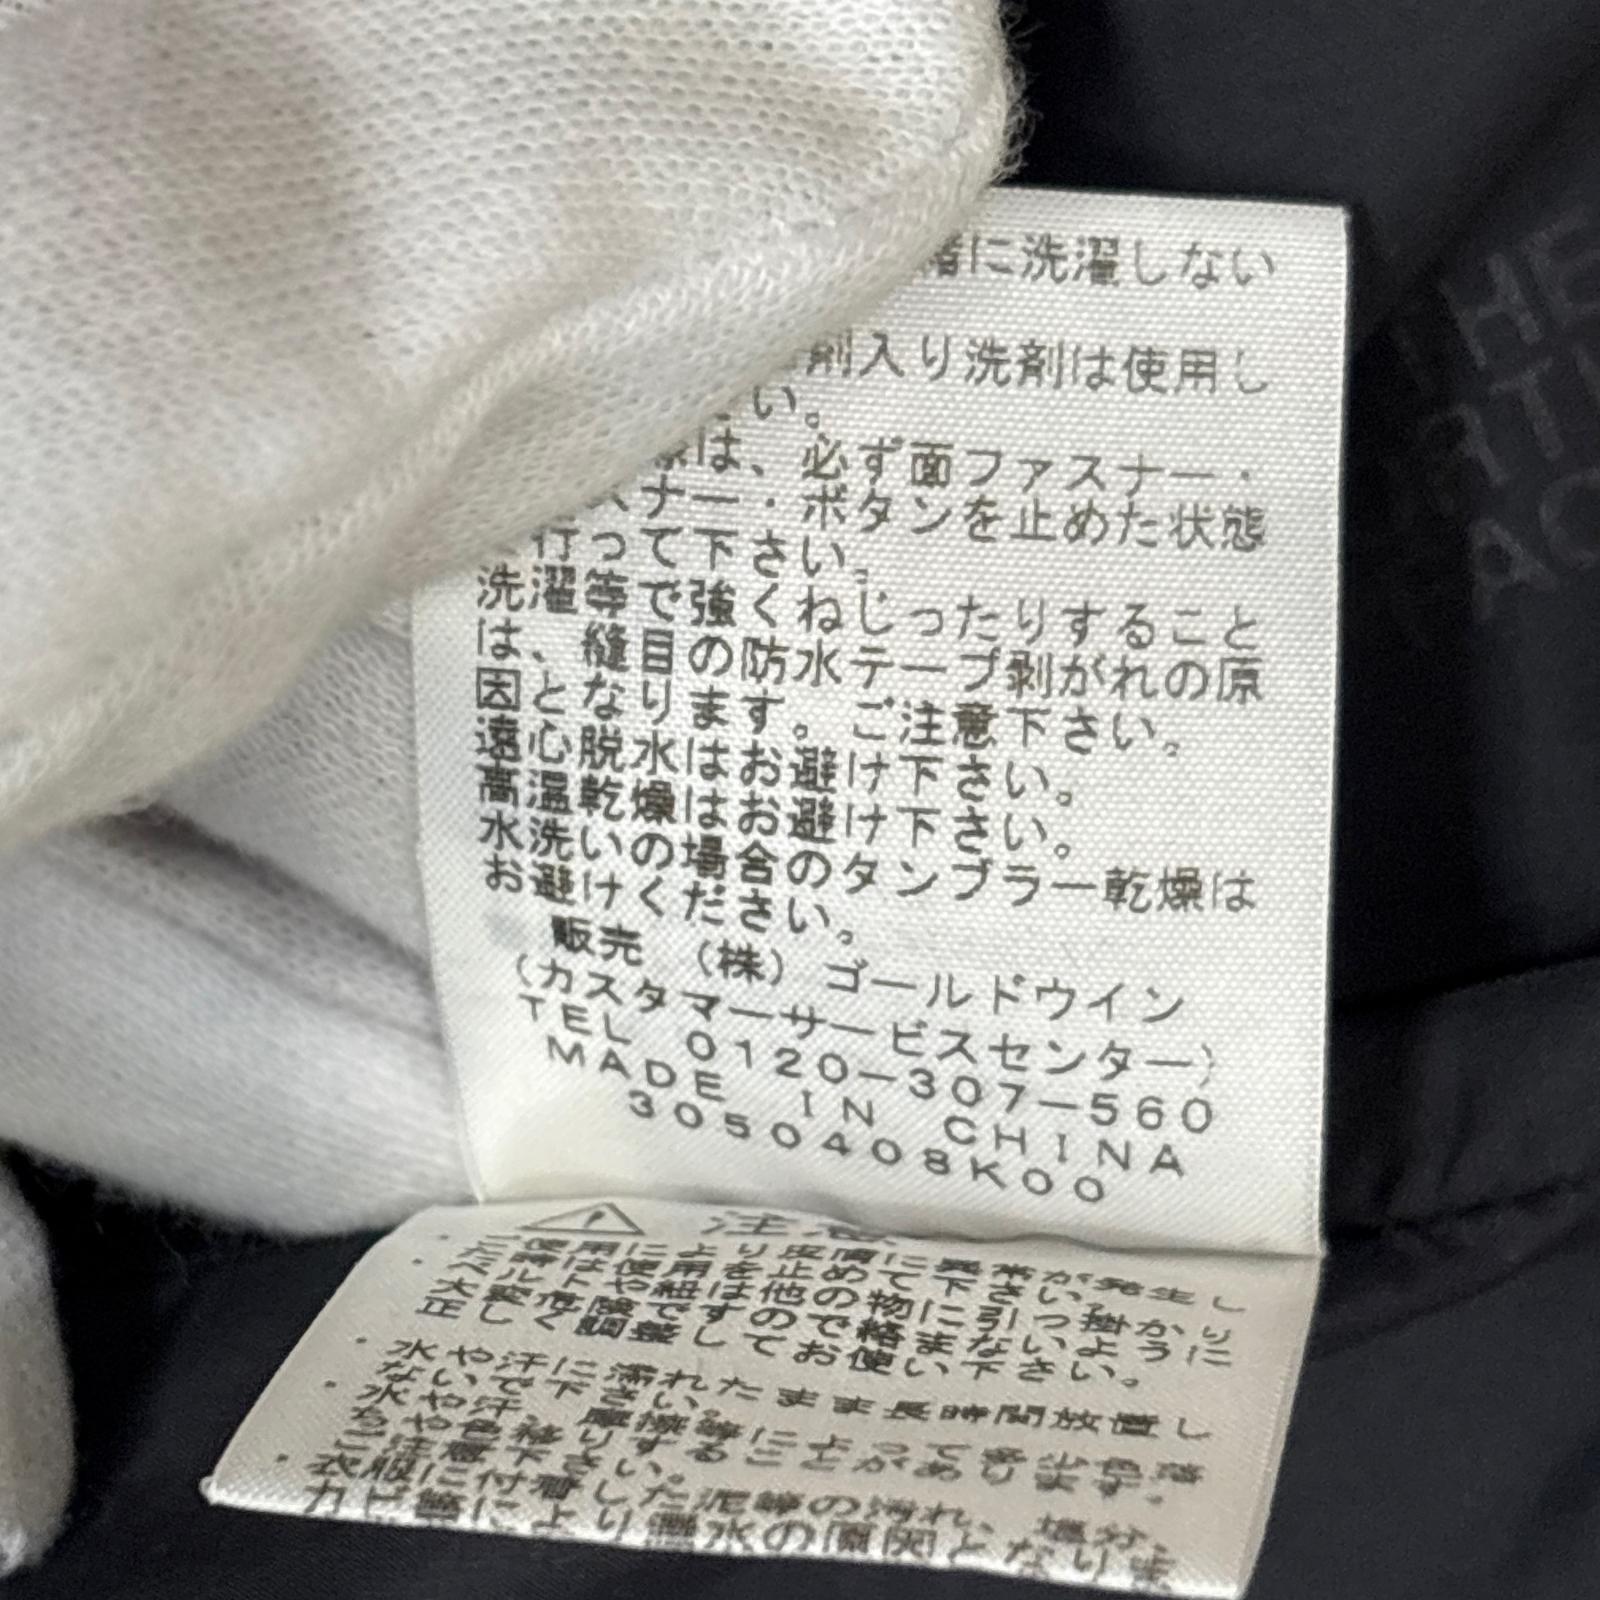 緒に洗濯しない
剤入り洗剤は使用し
い。
際は、必ず面ファスナー・
スナー・ボタンを止めた状態
行って下さい。
洗濯等で強くねじったりすること
は、縫目の防水テープ剥がれの原
因となります。ご注意下さい。
遠心脱水はお避け下さい。
高温乾燥はお避け下さい。
水洗いの場合のタンブラー乾燥は
お避けください。
販売 (株) ゴールドウイン
(カスタマーサービスセンター)
TEL 0120-307-560
MADE IN CHINA
3050408K00
注意
・ご使用により皮膚に異常が発生し
た時は使用を止めて下さい。
・ベルトや紐は他の物に引っ掛かり
大変危険ですので絡まないように
正しく調整してお使い下さい。
・水や汗に濡れたまま長時間放置し
ないで下さい。
・水や汗、摩擦等によって多少色落
ちや色移りすることがあります。
ご注意下さい。
・衣服に付着した泥等の汚れ、塩分、
カビ等により漏水の原因となりま
THE
RTH
AC